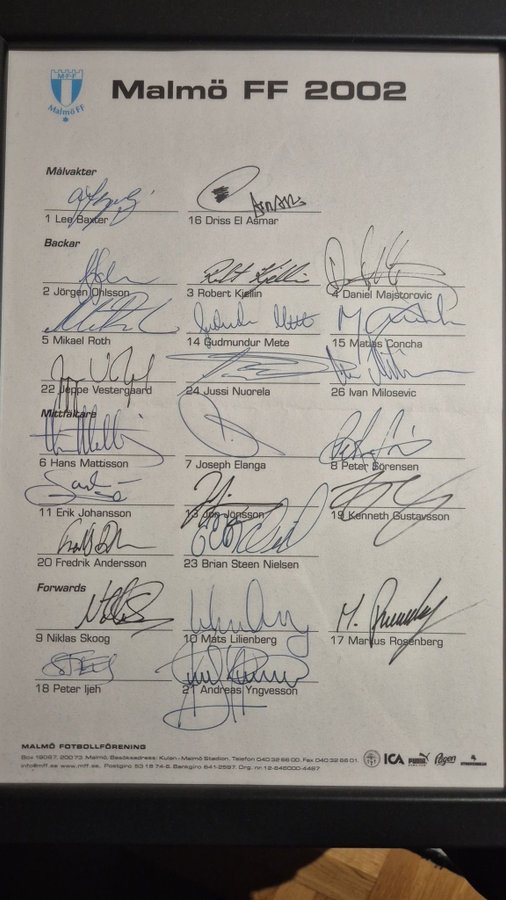 M·F·F
Malmö FF
Malmö FF 2002
Målvakter
1 Lee Baxter 16 Driss El Asmar
Backar
2 Jörgen Ohlsson 3 Robert Kjellin 4 Daniel Majstorovic
5 Mikael Roth 14 Gudmundur Mete 15 Matias Concha
22 Jeppe Vestergaard 24 Jussi Nuorela 26 Ivan Milosevic
Mittfältare
6 Hans Mattisson 7 Joseph Elanga 8 Peter Sörensen
11 Erik Johansson 13 Jon Jönsson 19 Kenneth Gustavsson
20 Fredrik Andersson 23 Brian Steen Nielsen
Forwards
9 Niklas Skoog 10 Mats Lilienberg 17 Markus Rosenberg
18 Peter Ijeh 21 Andreas Yngvesson
MALMÖ FOTBOLLFÖRENING
Box 19067, 200 73 Malmö, Besöksadress: Kulan - Malmö Stadion, Telefon 040 32 66 00, Fax 040 32 66 01,
info@mff.se, Postgiro 53 18 74-6, Bankgiro 641-2597, Org. nr. 12-846000-4467
ICA PUMA Pågen